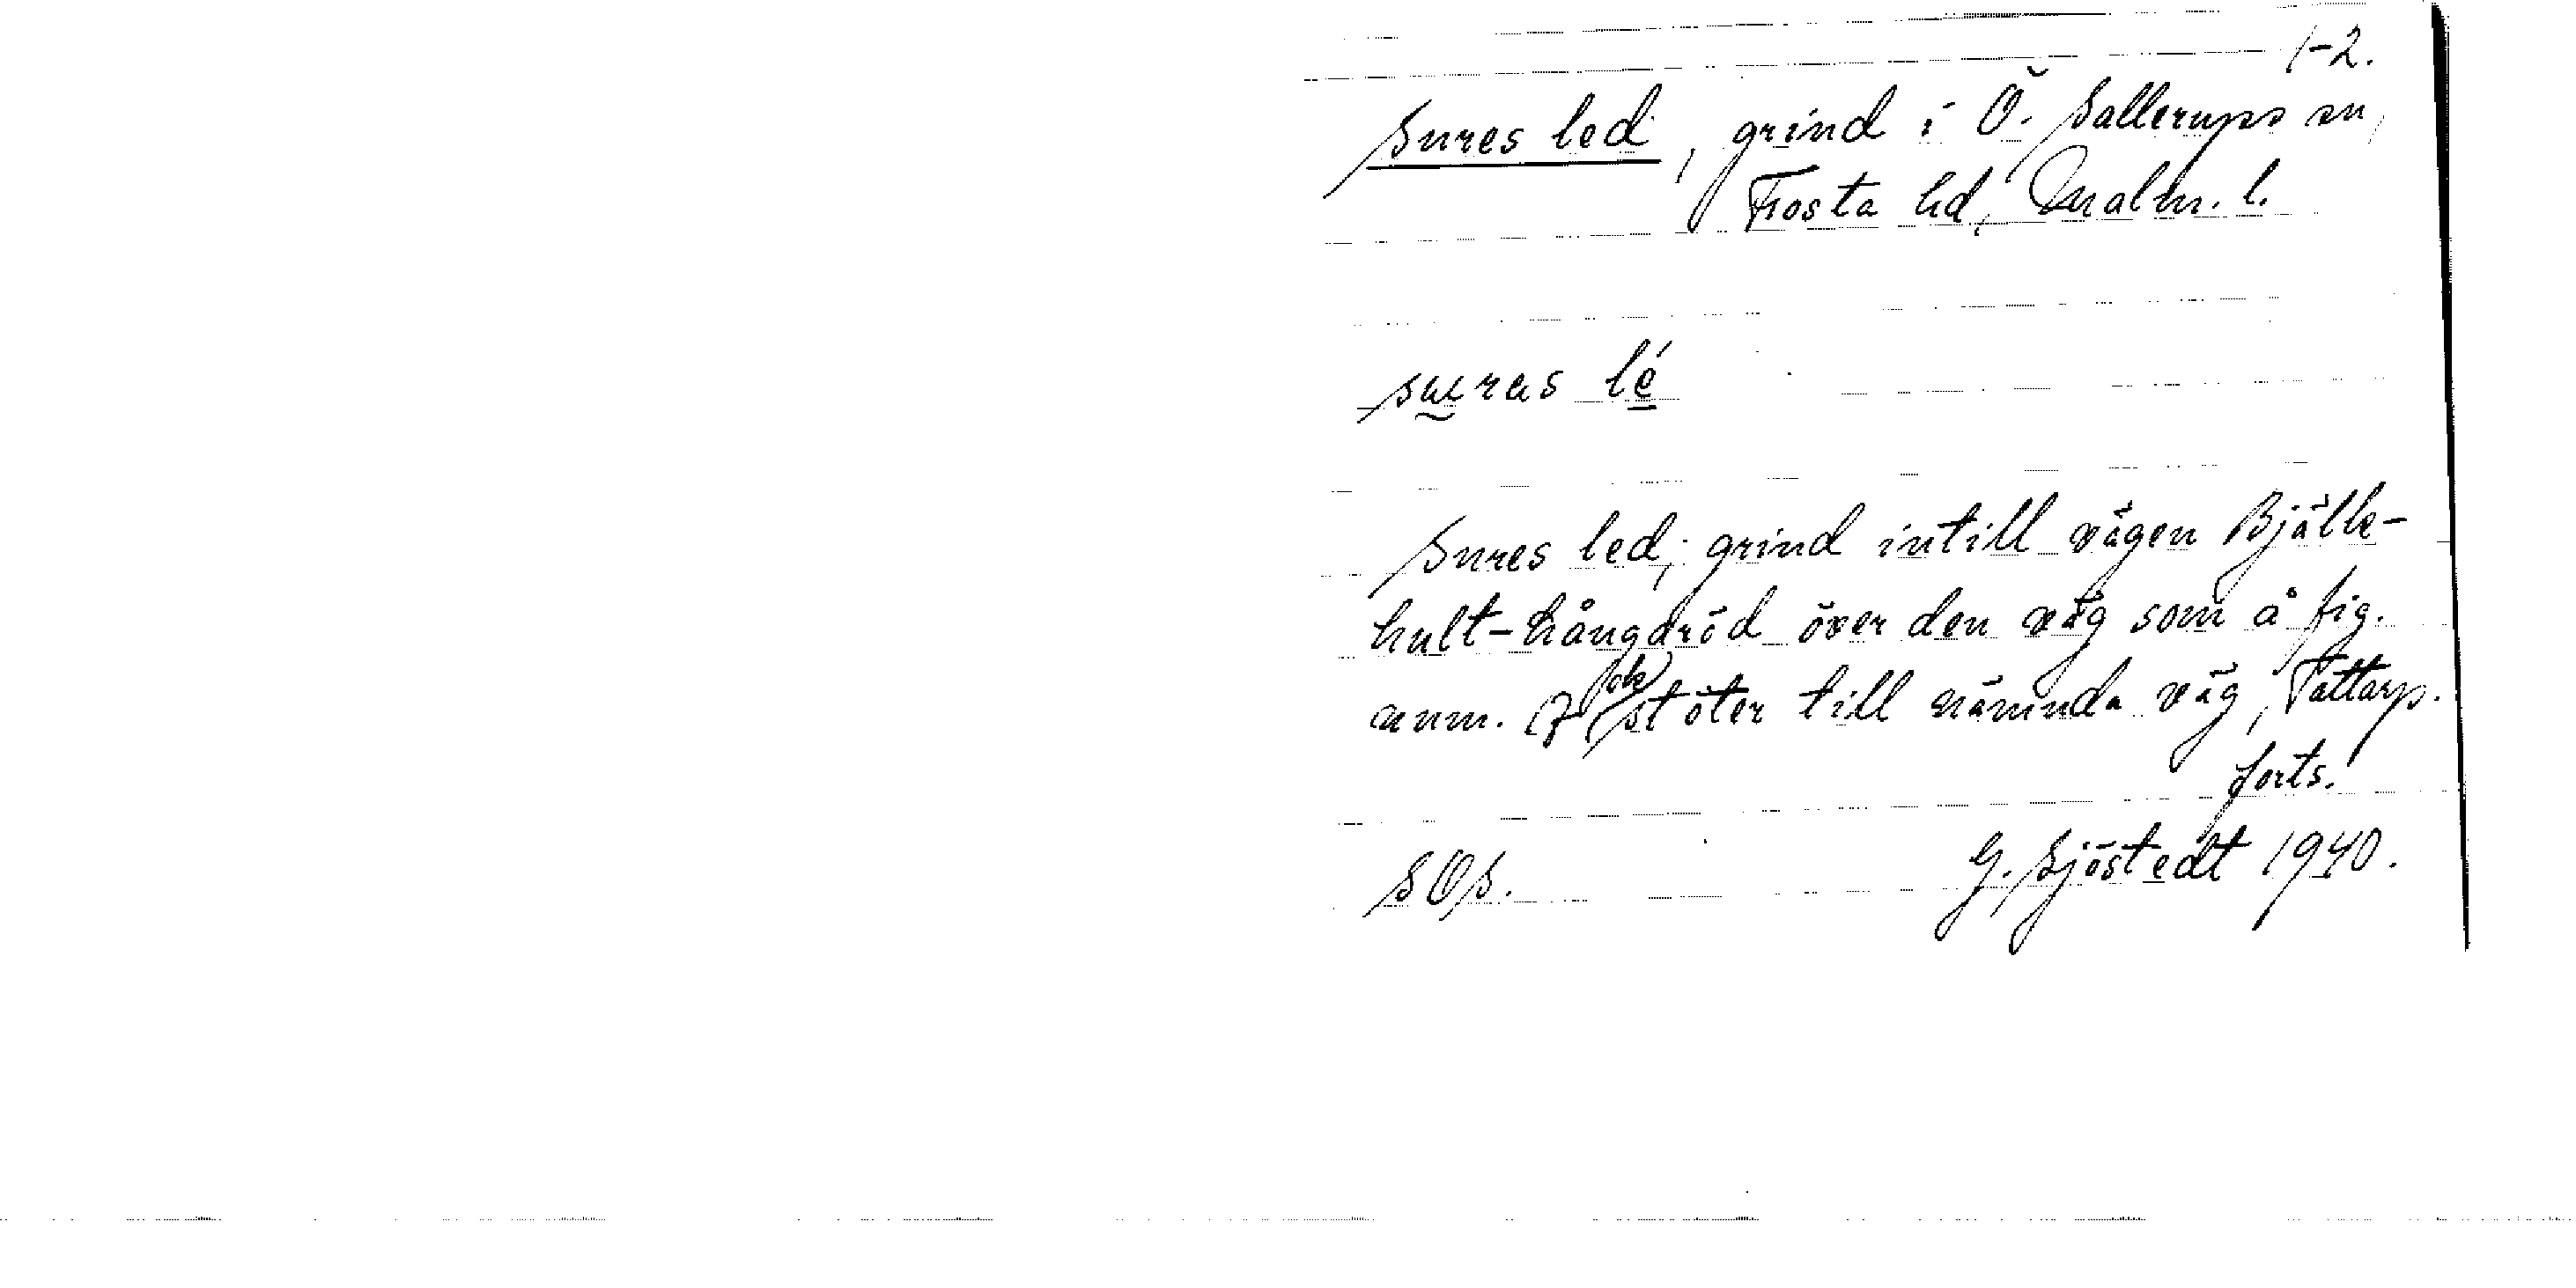 1-2.
Sures led, grind i Ö. Sallerups sn,
Frosta hd, Malm. l.
suras lé
Sures led; grind intill vägen Bjälle-
hult-Långaröd över den väg som å fig.
anm. 7 stöter till nämnda väg, Tattarp.
forts.
SOS. G. Sjöstedt 1940.